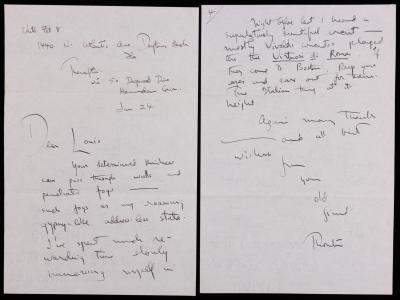 Until Feb 8
1440 N. Atlantic Ave Daytona Beach
Fla
Thereafter
50 Deepwood Drive
Hamden Conn.
Jan 24
Dear Louis
Your determined kindness
can pass through walls and
penetrate fogs —
such fogs as my
gypsy-like address-less state.
I've spent much re-
warding time slowly
immersing myself in
4.
Night before last I heard a
superlatively beautiful concert —
mostly Vivaldi concertos played
by the Virtuosi di Roma; if
they come to Boston. Keep your
eyes and ears out for them.
The Italian thing at its
height
Again many thanks
— and all best
wishes
from
your
old
friend
Thornton